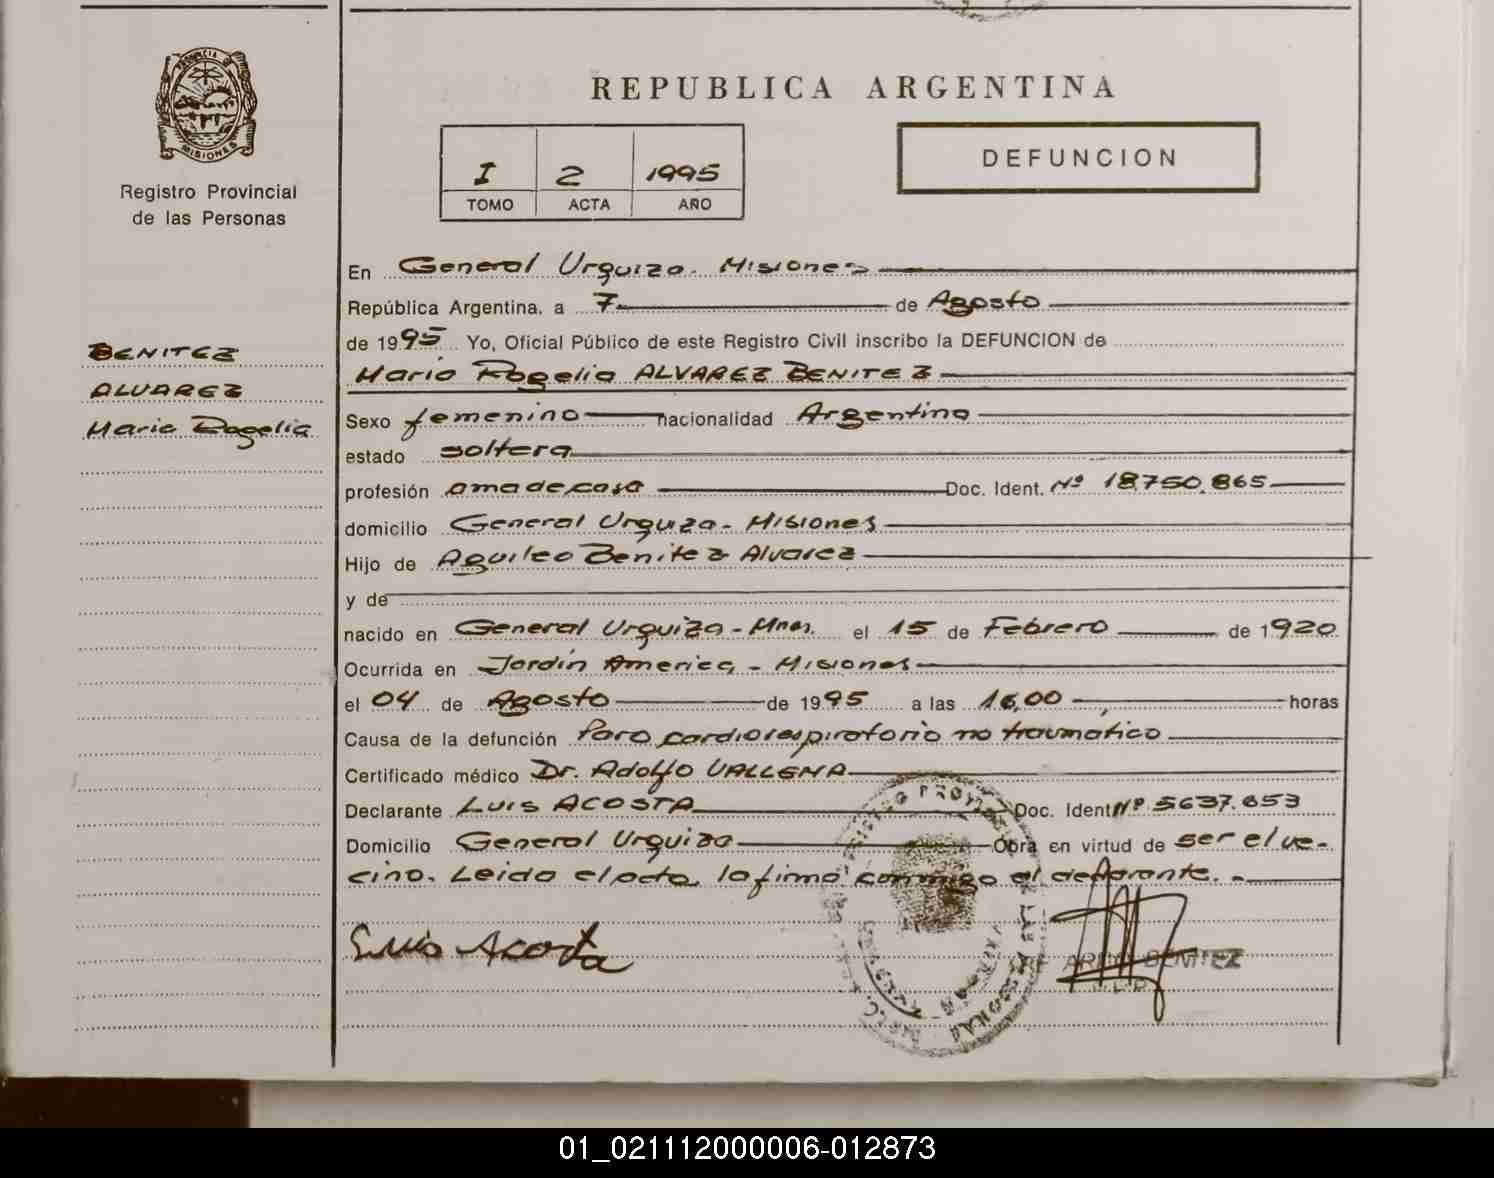 PROVINCIA DE
MISIONES
Registro Provincial
de las Personas
BENITEZ
ALVAREZ
Maria Rogelia
REPUBLICA ARGENTINA
I 2 1995
TOMO ACTA AÑO
DEFUNCION
En General Urquiza. Misiones
República Argentina, a 7 de Agosto
de 1995 Yo, Oficial Público de este Registro Civil inscribo la DEFUNCION de
Maria Rogelia ALVAREZ BENITEZ
Sexo femenino nacionalidad Argentina
estado soltera
profesión ama de casa Doc. Ident. Nº 18.750.865
domicilio General Urquiza - Misiones
Hijo de Aguileo Benitez Alvarez
y de
nacido en General Urquiza - Mnes. el 15 de Febrero de 1920
Ocurrida en Jardín America - Misiones
el 04 de Agosto de 1995 a las 16,00 horas
Causa de la defunción Paro cardiorespiratorio no traumatico
Certificado médico Dr. Adolfo VALLENA
Declarante Luis ACOSTA Doc. Ident Nº 5637.653
Domicilio General Urquiza Obra en virtud de ser el ve-
cino. Leida el acta, la firma conmigo el declarante. -
Luis Acosta
BENITEZ
01_021112000006-012873